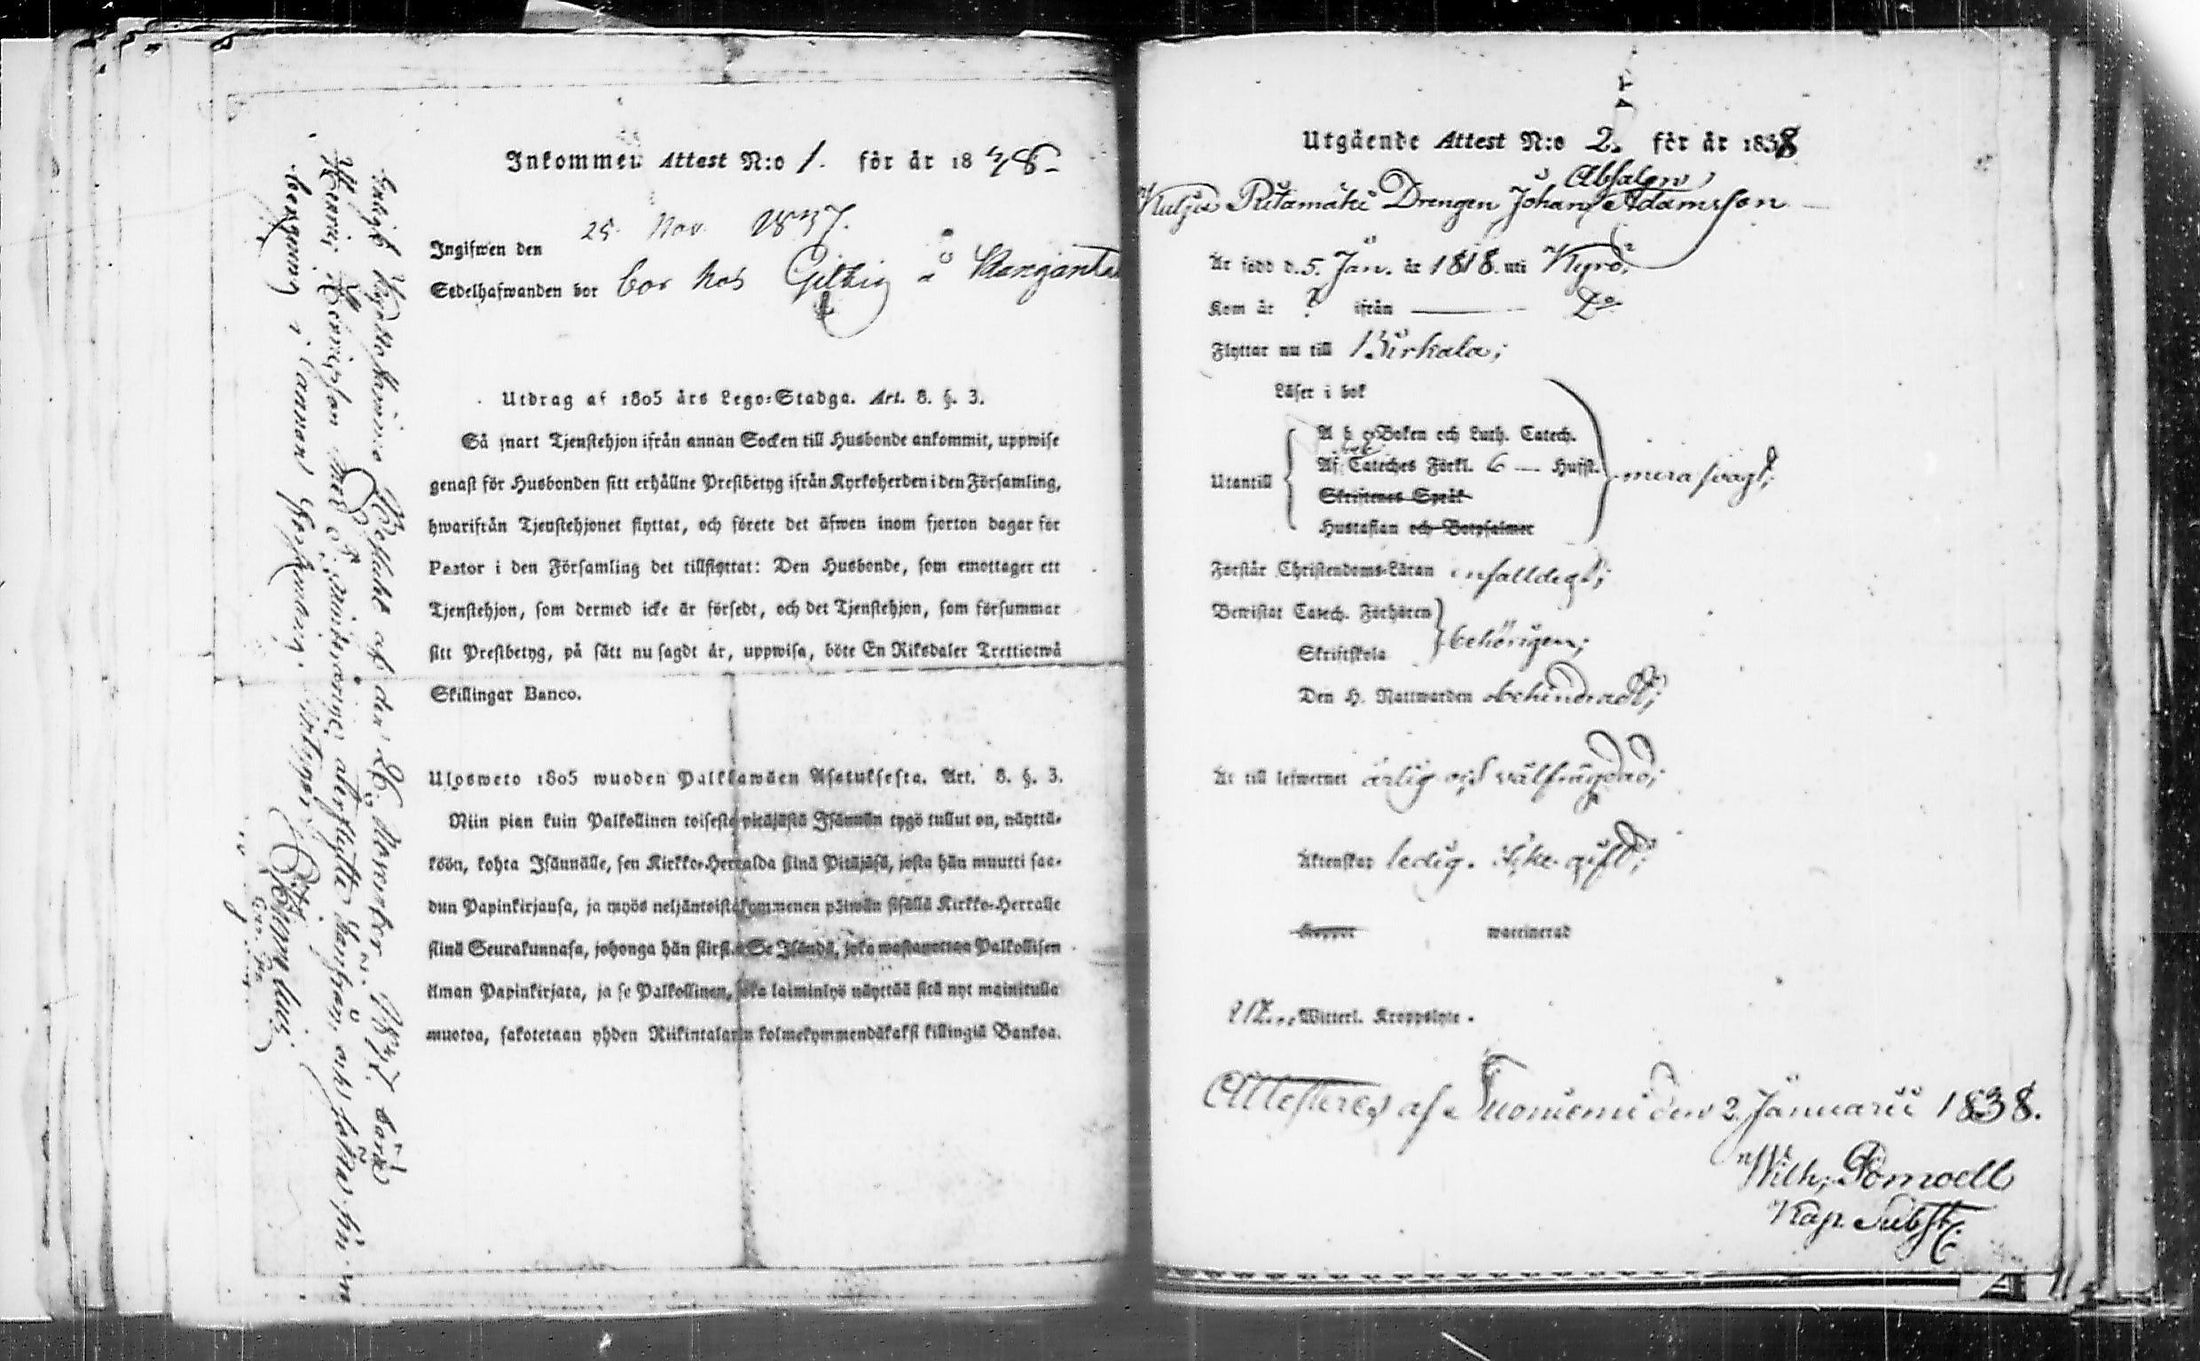 Inkommen Attest N:o 1. för år 18
Ingifwen den 25 Nov 1837.
Sedelhafwanden bor bor hos Gilkig å Kangant
Utdrag af 1805 års Lego-Stadga. Art. 8. §. 3.
Så snart Tjenstehjon ifrån annan Socken till Husbonde ankommit, uppwise
genast för Husbonden sitt erhållne Prestbetyg ifrån Kyrkoherden i den Församling,
hwarifrån Tjenstehjonet flyttat, och förete det äfwen inom fjorton dagar för
Pastor i den Församling det tillflyttat: Den Husbonde, som emottager ett
Tjenstehjon, som dermed icke är försedt, och det Tjenstehjon, som försummar
sitt Prestbetyg, på sätt nu sagdt är, uppwisa, böte En Riksdaler Trettiotwå
Skillingar Banco.
Ulosweto 1805 wuoden Palkkawäen Asetuksesta. Art. 8. §. 3.
Niin pian kuin Palkollinen toisesta pitäjästä Isännän tygö tullut on, näyttä-
köön, kohta Isännälle, sen Kirkko-Herralda siinä Pitäjäsä, josta hän muutti saa-
dun Papinkirjansa, ja myös neljäntoistakymmenen päiwän sisällä Kirkko-Herralle
siinä Seurakunnasa, johonga hän siirsi. Se Isändä, joka wastanottaa Palkollisen
ilman Papinkirjata, ja se Palkollinen, joka laiminlyö näyttää sitä nyt mainitulla
muotoa, sakotetaan yhden Riikintalarin kolmekymmendäkaksi killingiä Bankoa.
Enligt af den November 1837
Henric Henricsson med återflytta och
i annan församling.
Utgående Attest N:o 2. för år 1838
Absalon
Ritamäki Drengen Johan Adamsson
Är född d. 5. Jan. år 1818. uti Kyro
Kom år ? ifrån Do
Flyttar nu till Birkala;
Läser i bok
A b c Boken och Luth. Catech.
Utantill
Af Cateches Förkl. 6 — Hufst.
mera svagt;
Skriftenes Språk
Hustaflan och Botpsalmer
Förstår Christendoms-Läran enfalldigt;
Bewistat Catech. Förhören
behörigen;
Skriftskola
Den H. Nattwarden obehindradt;
Är till lefwernet ärlig och välfrägdad;
Äktenskap ledig. icke gift;
Koppor waccinerad
Witterl. Kroppslyte.
Attesteras af Suoniemi den 2 Januarii 1838.
Wilh; Pomoell
Kap. Subst.